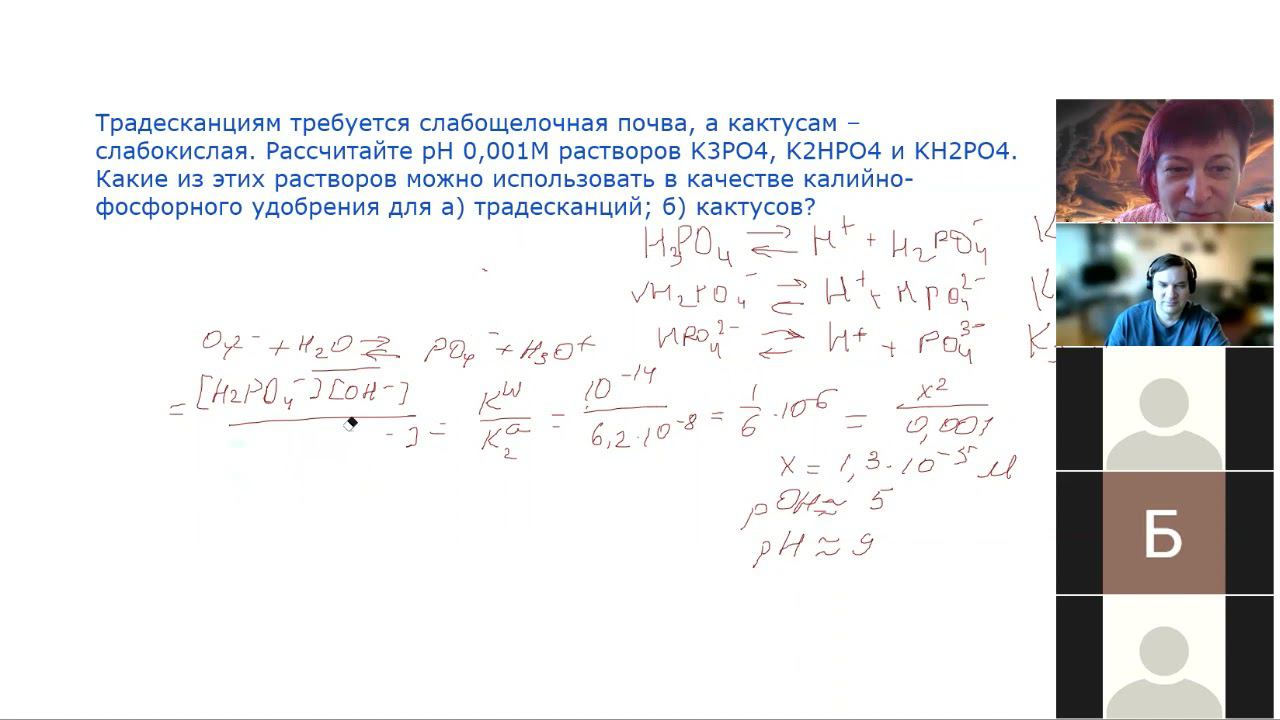 Традесканциям требуется слабощелочная почва, а кактусам –
слабокислая. Рассчитайте pH 0,001М растворов K3PO4, K2HPO4 и KH2PO4.
Какие из этих растворов можно использовать в качестве калийно-
фосфорного удобрения для а) традесканций; б) кактусов?
H₃PO₄ ⇄ H⁺ + H₂PO₄⁻ K
H₂PO₄⁻ ⇄ H⁺ + HPO₄²⁻ K
HPO₄²⁻ ⇄ H⁺ + PO₄³⁻ K₃
O₄²⁻ + H₂O ⇄ PO₄⁻ + H₃O⁺
= [H₂PO₄⁻][OH⁻] / -] = Kw / K₂ᵃ = 10⁻¹⁴ / 6,2·10⁻⁸ = 1/6 · 10⁻⁶ = x² / 0,001
x = 1,3·10⁻⁵ м
pOH ≈ 5
pH ≈ 9
Б